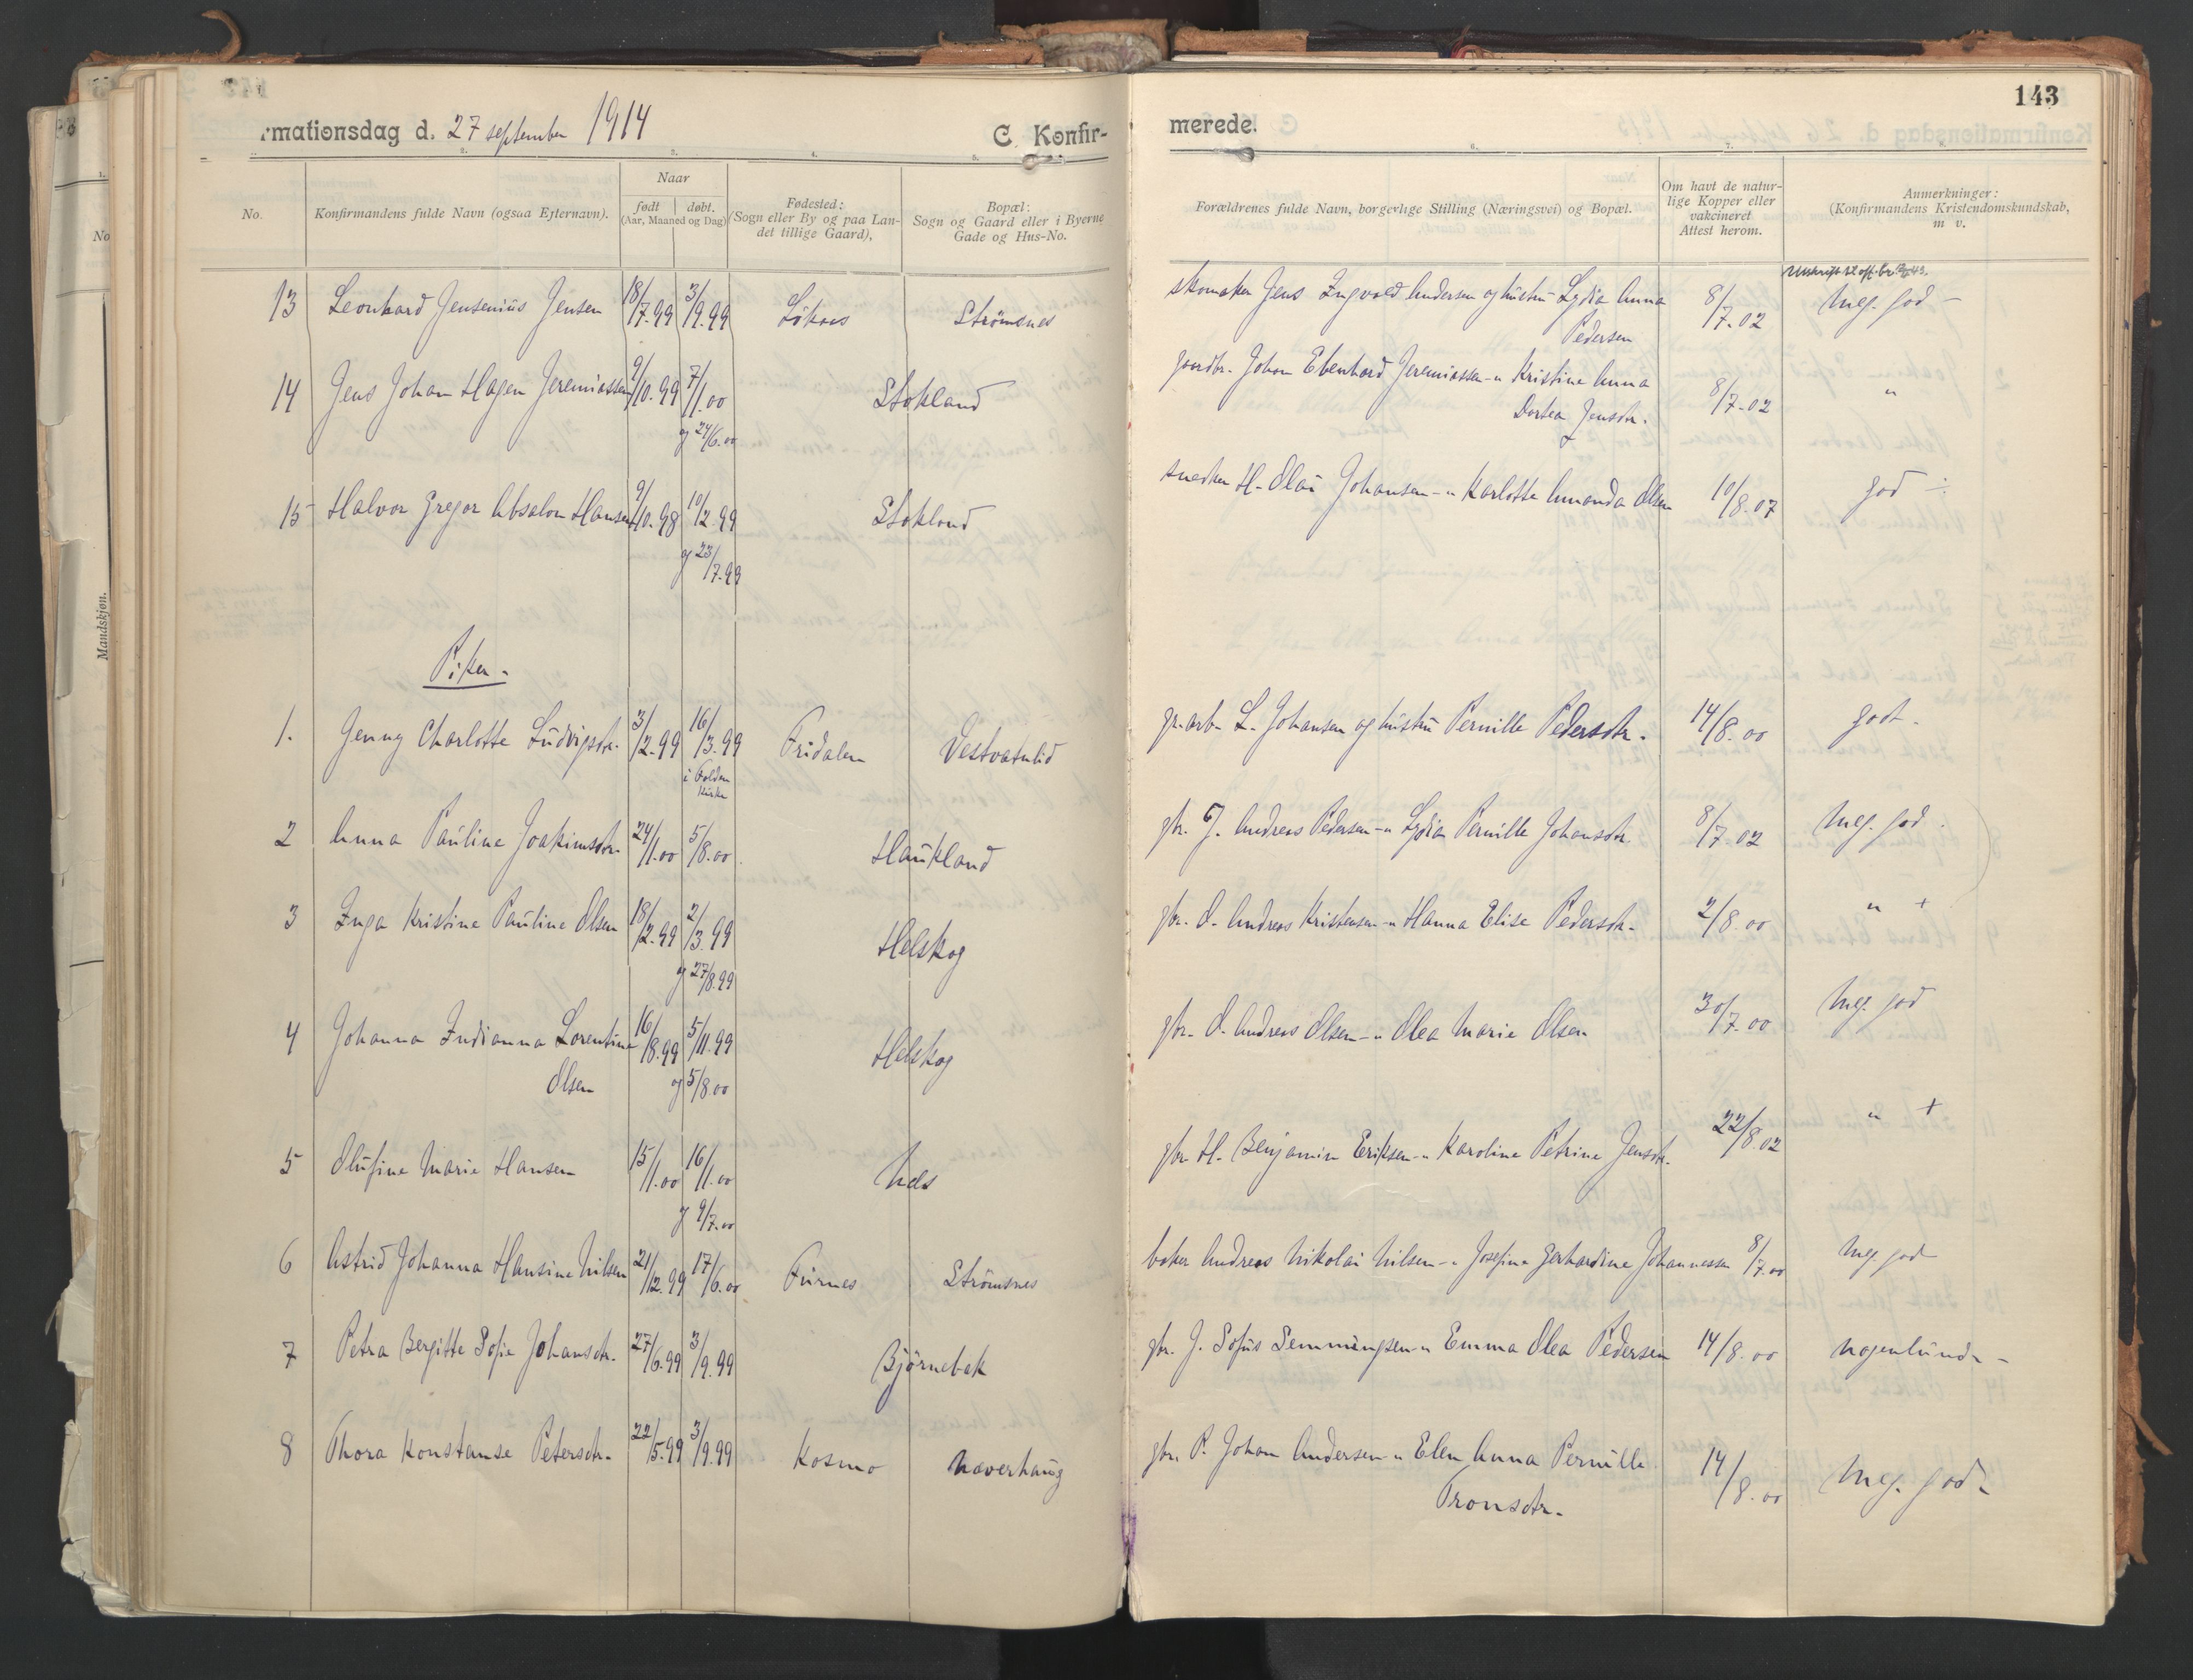 143
rmationsdag d. 27 september 1914
C. Konfir-
merede.
1. 2. 3. 4. 5. 6. 7.
No.
Konfirmandens fulde Navn (ogsaa Efternavn).
Naar
født | døbt.
(Aar, Maaned og Dag)
Fødested:
(Sogn eller By og paa Lan-
det tillige Gaard),
Bopæl:
Sogn og Gaard eller i Byerne
Gade og Hus-No.
Forældrenes fulde Navn, borgerlige Stilling (Næringsvei) og Bopæl.
Om havt de natur-
lige Kopper eller
vakcineret
Attest herom.
Anmerkninger:
(Konfirmandens Kristendomskundskab,
m v.
No
Mandskjøn.
13 Leonhard Jensenius Jensen 18/7.99 3/9.99 Løkaas Strömsnes skomaker Jens Ingvald Andersen og hustru Lydia Anna 8/7.02 Meg. god -
Pedersen
14 Jens Johan Hagen Jeremiassen 9/10.99 7/1.00 Stokland gaardbr. Johan Ebenhard Jeremiassen - " Kristine Anna 8/7.02 "
og 24/6.00 Dortea Jensdtr.
15 Halvor Gregor Absalon Hansen 9/10.98 10/12.99 Stokland snedker H. Olai Johansen - " Karlotte Amanda Olsen 10/8.07 god
og 23/7.99
Piker.
1. Jenny Charlotte Ludvigsdtr. 3/2.99 16/3.99 Fridalen Vestvatnlid gr.arb. L. Johansen og hustru Pernille Pedersdtr. 14/8.00 godt.
i Folden
kirke
2 Anna Pauline Joakimsdtr. 24/1.00 5/8.00 Haukland gbr. J. Andreas Pedersen - " Lydia Pernille Johansdtr. 8/7.02 Meg. god.
3 Inga Kristine Pauline Olsen 18/2.99 2/3.99 Helskog gbr. O. Andreas Kristensen - " Hanna Elise Pedersdtr. 2/8.00 " +
og 27/8.99
4 Johanna Indianna Lorentine 16/8.99 5/11.99 Helskog gbr. O. Andreas Olsen - " Olea Marie Olsen 30/7.00 Meg. god
Olsen og 5/8.00
5 Olufine Marie Hansen 15/1.00 16/1.00 Nes gbr. H. Benjamin Eriksen - " Karoline Petrine Jensdtr. 22/8.02 " +
og 9/7.00
6 Astrid Johanna Hansine Nilsen 21/12.99 17/6.00 Furnes Strömsnes baker Andreas Nikolai Nilsen - " Josefine Gerhardine Johannessen 8/7.00 Meg. god
7 Petra Bergitte Sofie Johansdtr. 27/6.99 3/9.99 Björnebak gbr. J. Sofus Semmingsen - " Emma Olea Pedersen 14/8.00 nogenlunde -
8 Thora Konstanse Petersdtr. 22/5.99 3/9.99 Kosmo Naverhaug gbr. P. Johan Andersen - " Elen Anna Pernille 14/8.00 Meg. god -
Tronsdtr.